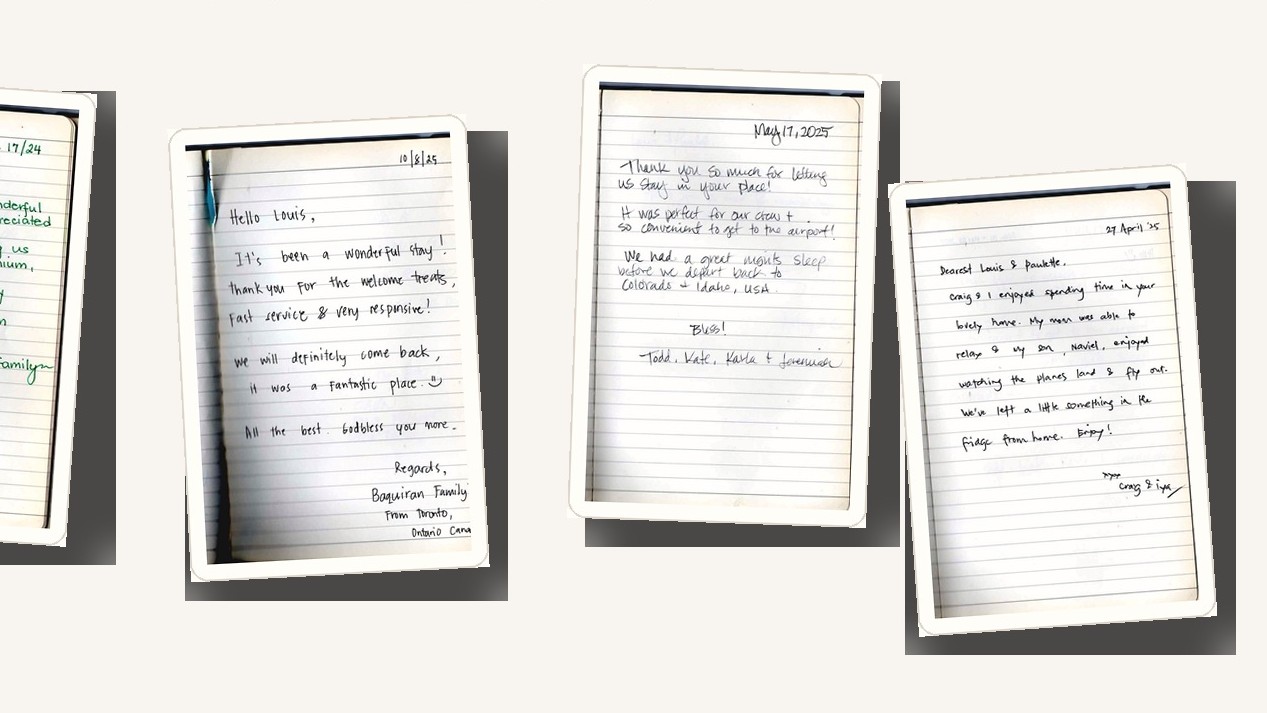 17/24
nderful
reciated
us
nium,
y
n
Family
10/8/25
Hello Louis,
It's been a wonderful stay!
thank you for the welcome treats,
Fast service & very responsive!
we will definitely come back,
it was a fantastic place. ☺
All the best. Godbless you more.
Regards,
Baquiran Family
From Toronto,
Ontario Cana
May 17, 2025
Thank you so much for letting
us stay in your place!
It was perfect for our crew +
so convenient to get to the airport!
We had a great nights sleep
before we depart back to
Colorado + Idaho, USA.
Bless!
Todd, Kate, Karla + Jeremiah
27 April '25
Dearest Louis & Paulette,
Craig & I enjoyed spending time in your
lovely home. My mom was able to
relax & my son, Naviel, enjoyed
watching the planes land & fly out.
We've left a little something in the
fridge from home. Enjoy!
Craig &